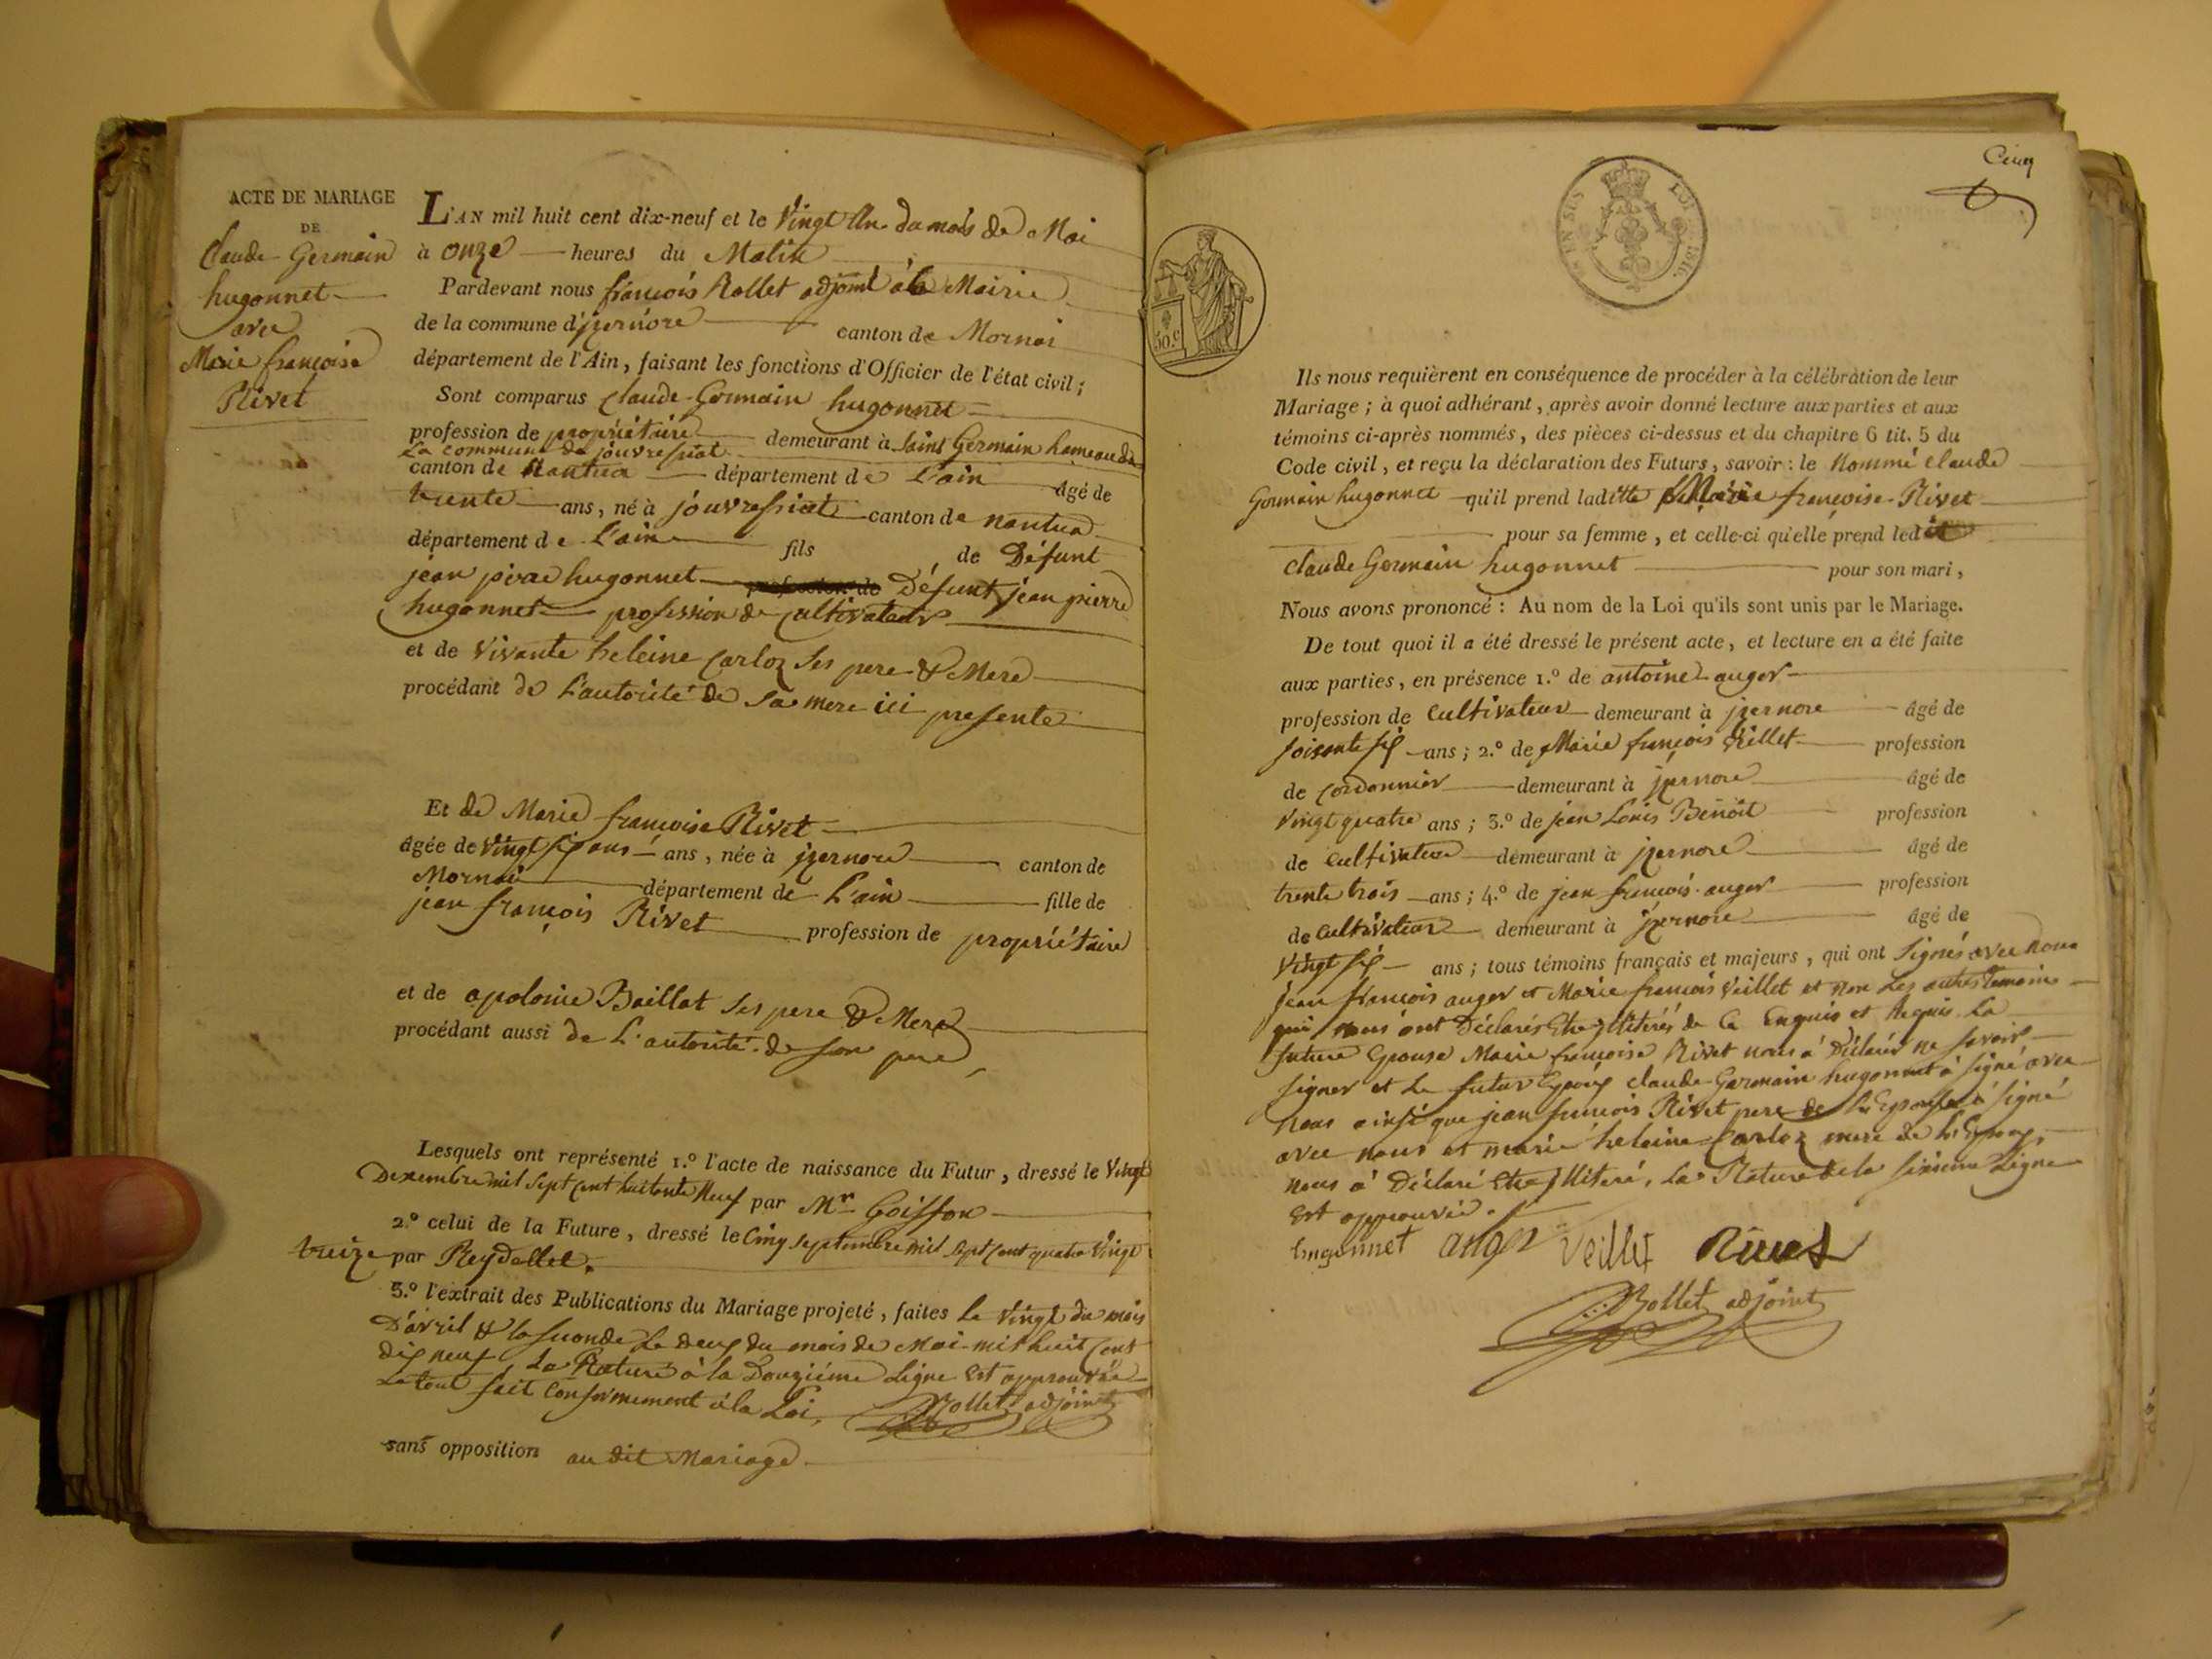 ACTE DE MARIAGE
DE
Claude Germain
hugonnet
avec
Marie françoise
Rivet
L'AN mil huit cent dix-neuf et le Vingt Un du mois de Mai
à onze heures du Matin
Pardevant nous françois Rollet adjoint à la Mairie
de la commune d'jzernore canton de Mornai
département de l'Ain, faisant les fonctions d'Officier de l'état civil;
Sont comparus Claude-Germain hugonnet
profession de propriétaire demeurant à Saint Germain hameau de
La commune de jouvressiat
canton de Nantua département de L'ain âgé de
trente ans, né à jouvressiat canton de nantua
département de L'ain fils de Défunt
jean pierre hugonnet profession de Défunt jean pierre
hugonnet profession de Cultivateur
et de Vivante heleine Carloz ses pere & Mere
procédant de L'autorité de sa mere ici presente
Et de Marie françoise Rivet
âgée de Vingt six ans ans, née à jzernore canton de
Mornai département de L'ain fille de
jean françois Rivet profession de propriétaire
et de apolonie Baillat ses pere & Mere
procédant aussi de L'autorité de son pere,
Lesquels ont représenté 1.º l'acte de naissance du Futur, dressé le Vingt
Dexembre mil sept cent huitante Neuf par Mr Goiffon
2.º celui de la Future, dressé le Cinq Septembre mil sept cent quatre Vingt
treize par Reydellet.
3.º l'extrait des Publications du Mariage projeté, faites le Vingt du mois
D'avril & la seconde le deux du mois de Mai mil huit cent
dix neuf, La Rature à la Douzième Ligne est approuvée
Le tout fait conformement à la Loi, Rollet adjoint
sans opposition au dit Mariage
Cinq
LOI
1816.
50.c
Ils nous requièrent en conséquence de procéder à la célébration de leur
Mariage; à quoi adhérant, après avoir donné lecture aux parties et aux
témoins ci-après nommés, des pièces ci-dessus et du chapitre 6 tit. 5 du
Code civil, et reçu la déclaration des Futurs, savoir: le Nommé Claude
Germain hugonnet qu'il prend laditte Marie françoise Rivet
pour sa femme, et celle-ci qu'elle prend ledit
Claude Germain hugonnet pour son mari,
Nous avons prononcé: Au nom de la Loi qu'ils sont unis par le Mariage.
De tout quoi il a été dressé le présent acte, et lecture en a été faite
aux parties, en présence 1.º de antoine auger
profession de Cultivateur demeurant à jzernore âgé de
soixante six ans; 2.º de Marie françois Veillet profession
de Cordonnier demeurant à jzernore âgé de
Vingt quatre ans; 3.º de jean Louis Benoit profession
de Cultivateur demeurant à jzernore âgé de
trente trois ans; 4.º de jean françois auger profession
de Cultivateur demeurant à jzernore âgé de
Vingt six ans; tous témoins français et majeurs, qui ont Signés avec nous
jean françois auger et Marie françois Veillet et non Les autres Temoins
qui nous ont Déclarés Etre jlliterés de Ce Enquis et Requis La
future Epouse Marie françoise Rivet nous à Déclaré ne savoir
signer et Le futur Epoux Claude Germain hugonnet à signé avec
Nous ainsi que jean françois Rivet pere de L'Epouse à signé
avec nous et marie heleine Carloz mere de L'Epoux
nous à Déclaré Etre jlliteré, La Rature de la sixieme Ligne
est approuvée.
hugonnet auger Veillet Rivet
Rollet adjoint